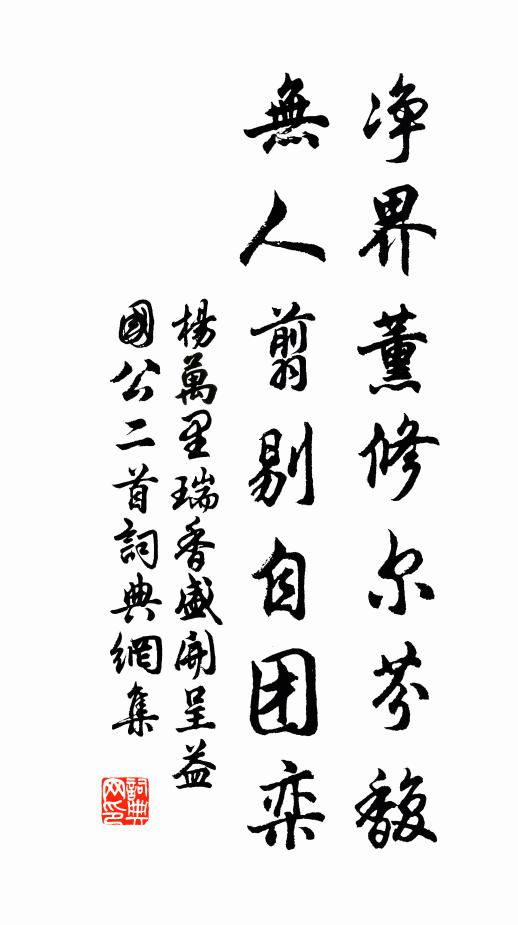 净界薰修尔芬馥
無人剪剔自团栾
楊萬里瑞香盛開呈益
國公二首詞典網集
詞典网印